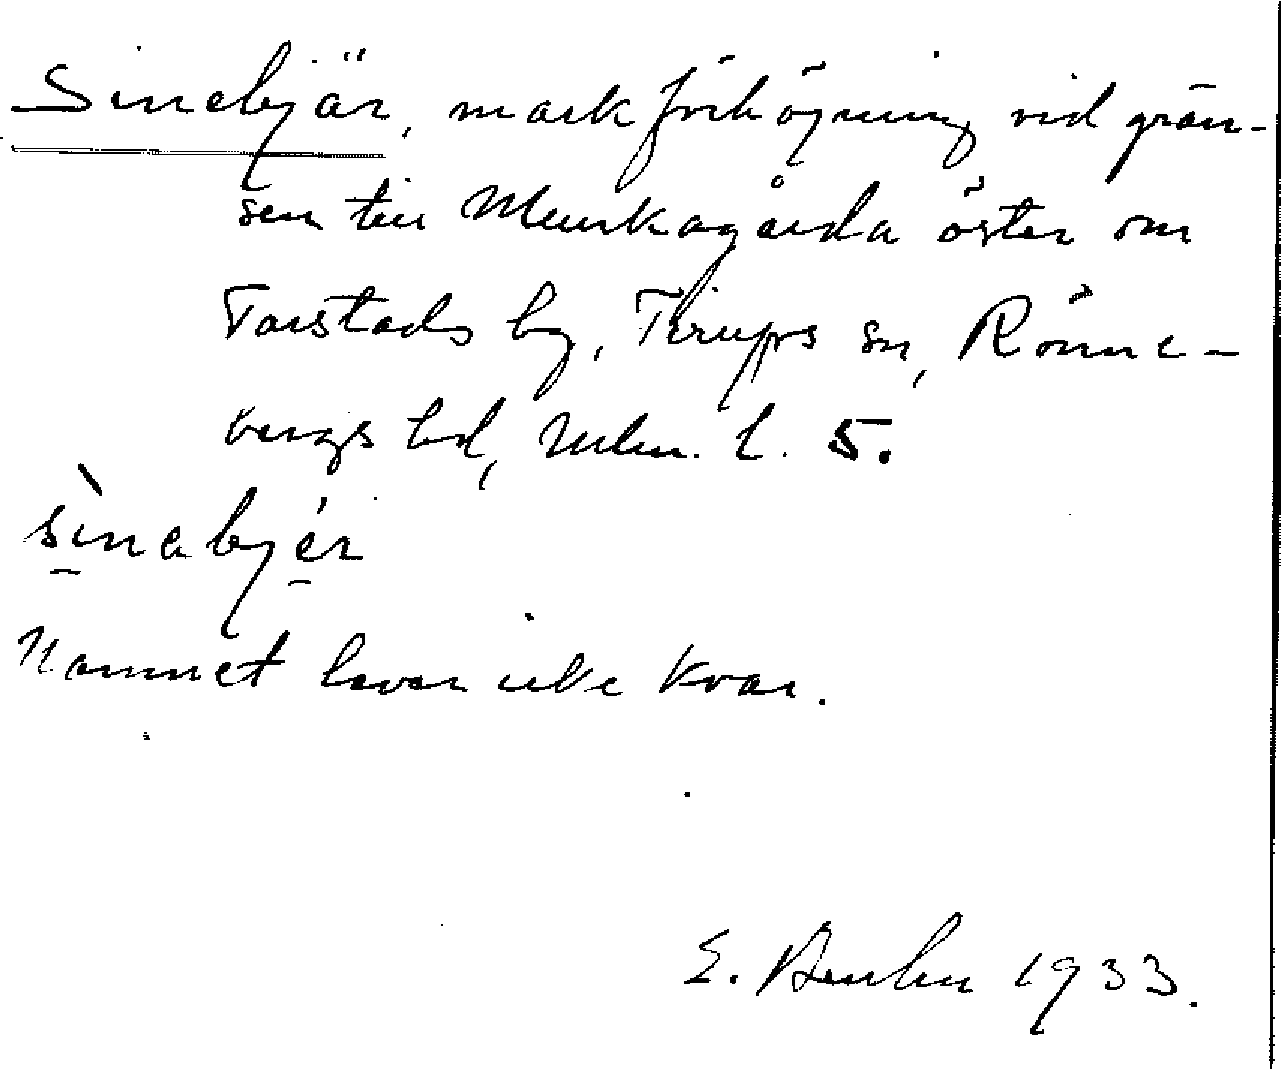 Sinebjär, markförhögning vid grän-
sen till Munkagårda öster om
Torstads by, Tirups sn, Rönne-
bergs hd, Mlm. l. 5.
sìnabjér
Namnet lever icke kvar.
E. 1933.